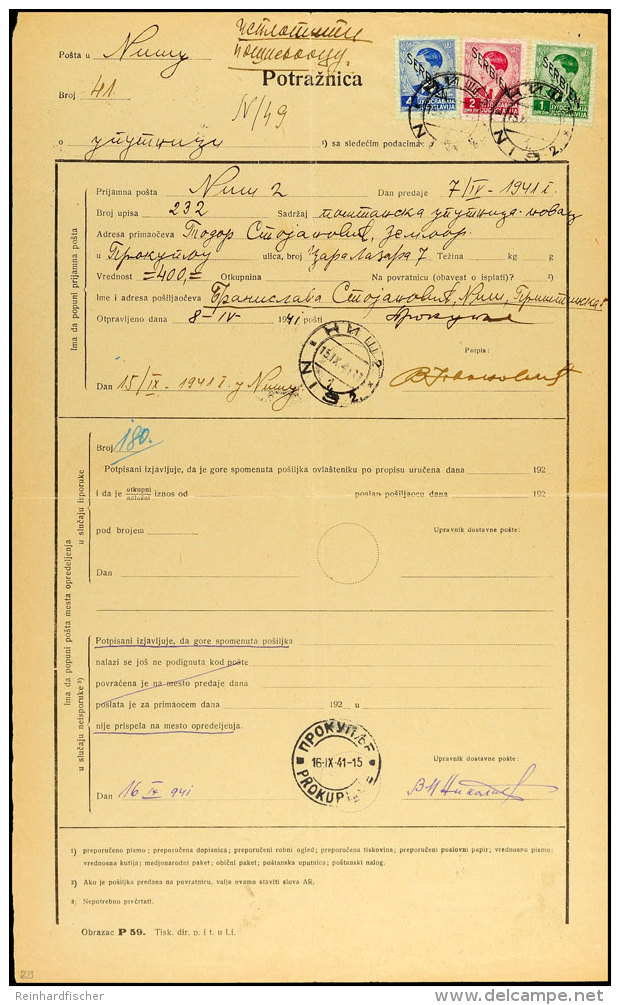 Pošta u Нишу
Broj 41.
Potražnica
N/49
SERBIEN SERBIEN SERBIEN
4 2 1
ЈУГОСЛАВИЈА ЈУГОСЛАВИЈА
JUGOSLAVIJA JUGOSLAVIJA
НИШ 2 NIŠ 2
o упутници ¹) sa sledećim podacima:
Ima da popuni prijamna pošta
Prijamna pošta Ниш 2 Dan predaje 7/IV - 1941 г.
Broj upisa 232 Sadržaj поштанска упутница - новац
Adresa primaočeva Тодор Стојановић,
u Прокупљу ulica, broj Цара Лазара 7 Težina kg g
Vrednost =400,= Otkupnina Na povratnicu (obavest o isplati)? ²)
Ime i adresa pošiljaočeva Бранислава Стојановић, Ниш, Приштинска
Otpravljeno dana 8-IV- 1941 pošti Прокупље
НИШ 2
15.IX.41
NIŠ 2
Potpis:
Dan 15/IX - 1941 г. у Нишу
Ima da popuni pošta mesta opredeljenja
u slučaju isporuke
Broj 180.
Potpisani izjavljuje, da je gore spomenuta pošiljka ovlašteniku po propisu uručena dana 192
i da je otkupni/naložni iznos od poslan pošiljaocu dana 192
pod brojem Upravnik dostavne pošte:
Dan
u slučaju neisporuke ³)
Potpisani izjavljuje, da gore spomenuta pošiljka
nalazi se još ne podignuta kod pošte
povraćena je na mesto predaje dana
poslata je za primaocem dana 192 u
nije prispela na mesto opredeljenja.
ПРОКУПЉЕ
16·IX 41-15
PROKUPLJE
Upravnik dostavne pošte:
Dan 16 IX 941
¹) preporučeno pismo; preporučena dopisnica; preporučeni robni ogled; preporučena tiskovina; preporučeni poslovni papir; vrednosno pismo;
vrednosna kutija; medjunarodni paket; obični paket; poštanska uputnica; poštanski nalog.
²) Ako je pošiljka predana na povratnicu, valja ovamo staviti slova AR.
³) Nepotrebno prečrtati.
Obrazac P 59. Tisk. dir. p. i t. u Lj.
Reinhardfischer
delcampe.net